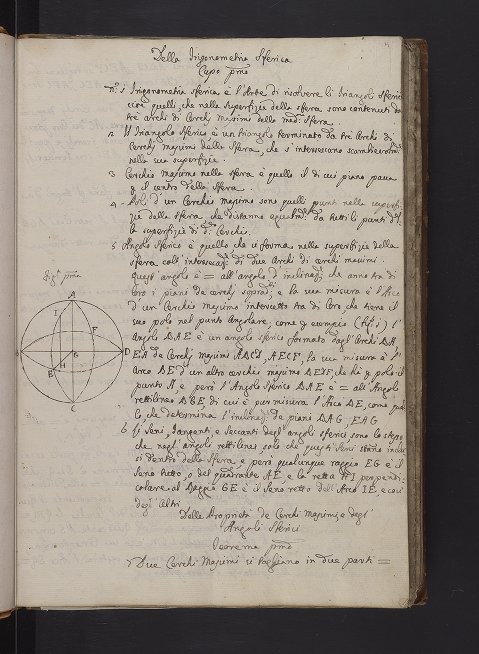 Della Trigonometria Sferica
Capo pmo
n.° 1 Trigonometria sferica è l'Arte di risolvere li Triangoli sferici
cioè quelli, che nella superfizie della sfera sono contenuti da
tre archi di Cerchj Massimi della med.a Sfera.
2 Il Triangolo Sferico è un triangolo terminato da trè Archi di
Cerchj massimi della Sfera, che s'intersecano scambievolm.te
nella sua superfizie.
3 Cerchio Massimo nella sfera è quello il di cui piano passa
p il centro della Sfera
4 Poli d'un Cerchio Massimo sono quelli punti nella superfi-
zie della sfera, che distanno egualm.te da tutti li punti della
superfizie di d.° Cerchio.
5 Angolo sferico è quello che si forma nella superfizie della
sfera coll'intersecaz.e di due Archi di cerchi massimi.
questo angolo è = all'angolo d'inclinaz.e che anno tra di
loro i piani de cerchj sopradti; e la sua misura è l'Arco
d'un Cerchio Massimo intercetto tra di loro, che tiene il
suo polo nel punto Angolare, come p esempio (fig. 1) l'
angolo DAE è un angolo sferico formato dagl'Archi DA,
EA de Cerchj massimi ADCB, AECF, la sua misura è l'
Arco DE d'un altro cerchio massimo DEBF, che hà p polo il
punto A, e però l'Angolo Sferico DAE è = all'Angolo
rettilineo DGE di cui è pur misura l'Arco DE, come quel
lo, che determina l'inclinaz.e de piani DAG, EAG
6 Li Seni, Tangenti, e Seccanti degl'angoli sferici sono lo stesso
che negl'angoli rettilinei, solo che questi Seni stanno inclu
si dentro della Sfera, e però qualunque raggio EG è il
Seno tutto, o del quadrante AE, e la retta HI perpendi-
colare al Raggio GE è il Seno retto dell'Arco IE e così
degl'altri
Delle Proprietà de Cerchj Massimi, e degl'
Angoli Sferici
Teorema pmo
7 Due Cerchi Massimi si tagliano in due parti =
fig.a pma
A
I
F
B
D
G
E
H
C